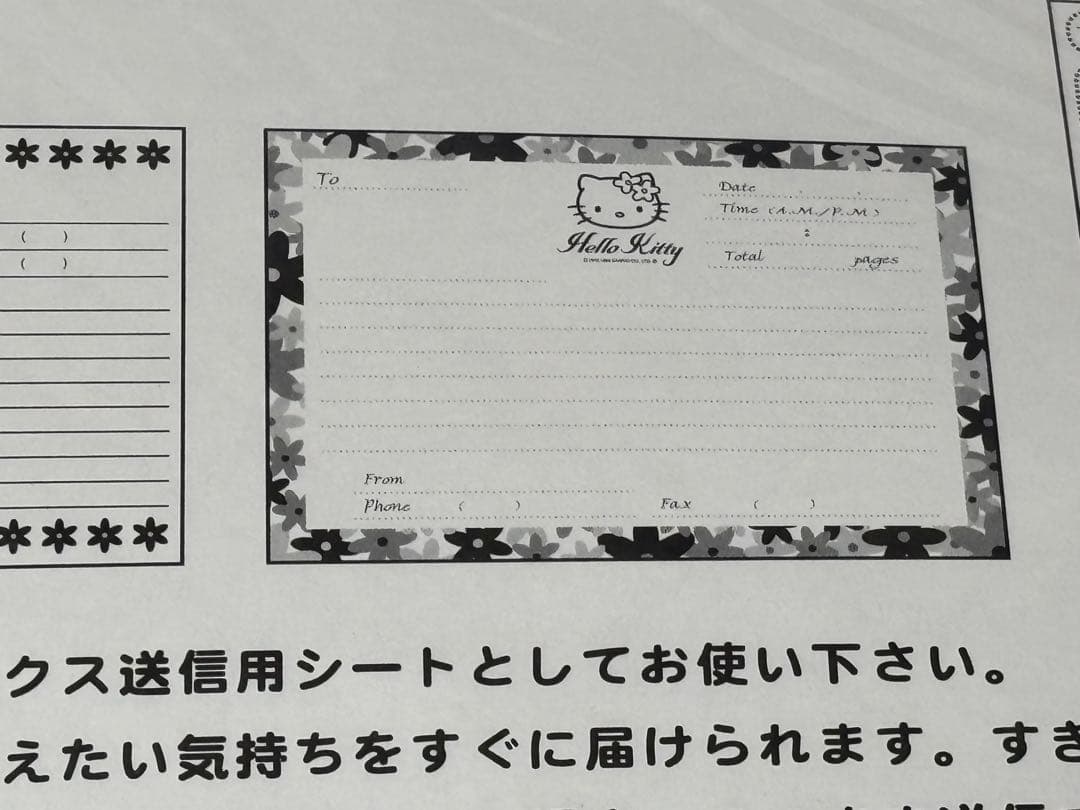 To
Date
Time (A.M./P.M)
:
Hello Kitty
Total pages
( )
( )
From
Phone ( ) Fax ( )
クス送信用シートとしてお使い下さい。
えたい気持ちをすぐに届けられます。すき